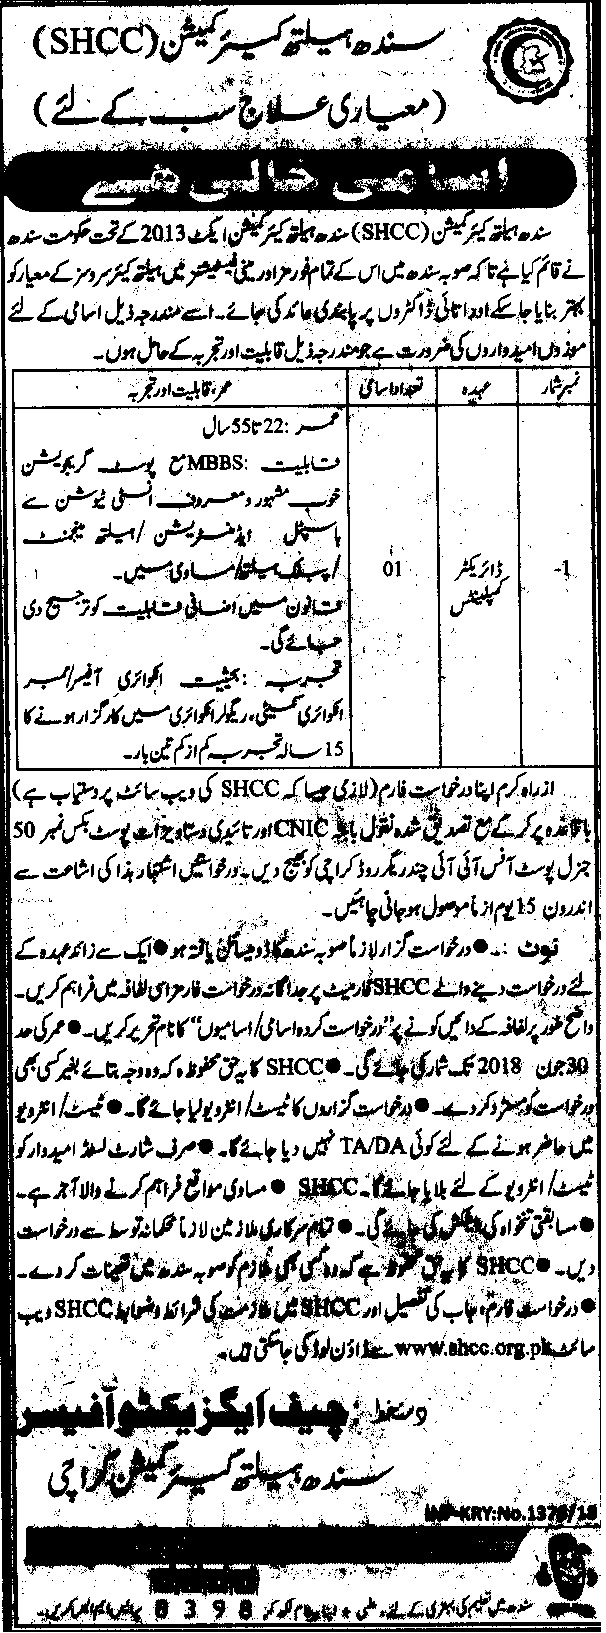 سندھ ہیلتھ کیئر کمیشن (SHCC)
(معیاری علاج سب کے لئے)
اسامی خالی ھے
سندھ ہیلتھ کیئر کمیشن (SHCC) سندھ ہیلتھ کیئر کمیشن ایکٹ 2013 کے تحت حکومت سندھ
نے قائم کیا ہے تاکہ صوبہ سندھ میں اس کے تمام فورمز اور مینی فیسٹیشنز میں ہیلتھ کیئر سروسز کے معیار کو
بہتر بنایا جاسکے اور اتائی ڈاکٹروں پر پابندی عائد کی جائے۔ اسے مندرجہ ذیل اسامی کے لئے
موزوں امیدواروں کی ضرورت ہے جو مندرجہ ذیل قابلیت اور تجربہ کے حامل ہوں۔
نمبر شمار عہدہ تعداد اسامی عمر، قابلیت اور تجربہ
1- ڈائریکٹر کمپلینٹس 01
عمر: 22 تا 55 سال
قابلیت: MBBS مع پوسٹ گریجویشن
خوب مشہور و معروف انسٹی ٹیوشن سے
ہاسپٹل ایڈمنسٹریشن / ہیلتھ مینجمنٹ
/ پبلک ہیلتھ / مساوی میں۔
قانون میں اضافی قابلیت کو ترجیح دی
جائے گی۔
تجربہ: بحیثیت انکوائری آفیسر/ممبر
انکوائری کمیٹی، ریگولر انکوائری میں کارگزار ہونے کا
15 سالہ تجربہ کم از کم تین بار۔
از راہ کرم اپنا درخواست فارم (لازمی جیسا کہ SHCC کی ویب سائٹ پر دستیاب ہے)
باقاعدہ پر کر کے مع تصدیق شدہ نقول CNIC اور تائیدی دستاویزات پوسٹ بکس نمبر 50
جنرل پوسٹ آفس آئی آئی چندریگر روڈ کراچی کو بھیج دیں۔ درخواستیں اشتہار ہذا کی اشاعت سے
اندرون 15 یوم لازماً موصول ہو جانی چاہئیں۔
نوٹ:۔ ● درخواست گزار لازماً صوبہ سندھ کا ڈومیسائل یافتہ ہو ● ایک سے زائد عہدہ کے
لئے درخواست دینے والے SHCC فارمیٹ پر جداگانہ درخواست فارمز اسی لفافہ میں فراہم کریں۔
واضح طور پر لفافہ کے دائیں کونے پر "درخواست کردہ اسامی/اسامیوں" کا نام تحریر کریں۔ ● عمر کی حد
30 جون 2018 تک شمار کی جائے گی۔ ● SHCC کا یہ حق محفوظ ہے کہ وہ وجہ بتائے بغیر کسی بھی
درخواست کو مسترد کردے۔ ● درخواست گزاروں کا ٹیسٹ/انٹرویو لیا جائے گا۔ ● ٹیسٹ/انٹرویو
میں حاضر ہونے کے لئے کوئی TA/DA نہیں دیا جائے گا۔ ● صرف شارٹ لسٹڈ امیدوار کو
ٹیسٹ/انٹرویو کے لئے بلایا جائے گا۔ SHCC ● مساوی مواقع فراہم کرنے والا آجر ہے۔
● مسابقتی تنخواہ کی پیشکش کی جائے گی۔ ● تمام سرکاری ملازمین لازماً محکمانہ توسط سے درخواست
دیں۔ ● SHCC کا یہ حق محفوظ ہے کہ وہ کسی بھی ملازم کو صوبہ سندھ میں تعینات کردے۔
● درخواست فارم، جاب کی تفصیل اور SHCC میں ملازمت کی شرائط و ضوابط SHCC ویب
سائٹ www.shcc.org.pk سے ڈاؤن لوڈ کی جاسکتی ہیں۔
دستخط: چیف ایگزیکٹو آفیسر
سندھ ہیلتھ کیئر کمیشن کراچی
INF-KRY:No.1376/18
سندھ میں تعلیم کی بہتری کے لئے، اپنا پیغام لکھ کر 8398 پر ایس ایم ایس کریں۔